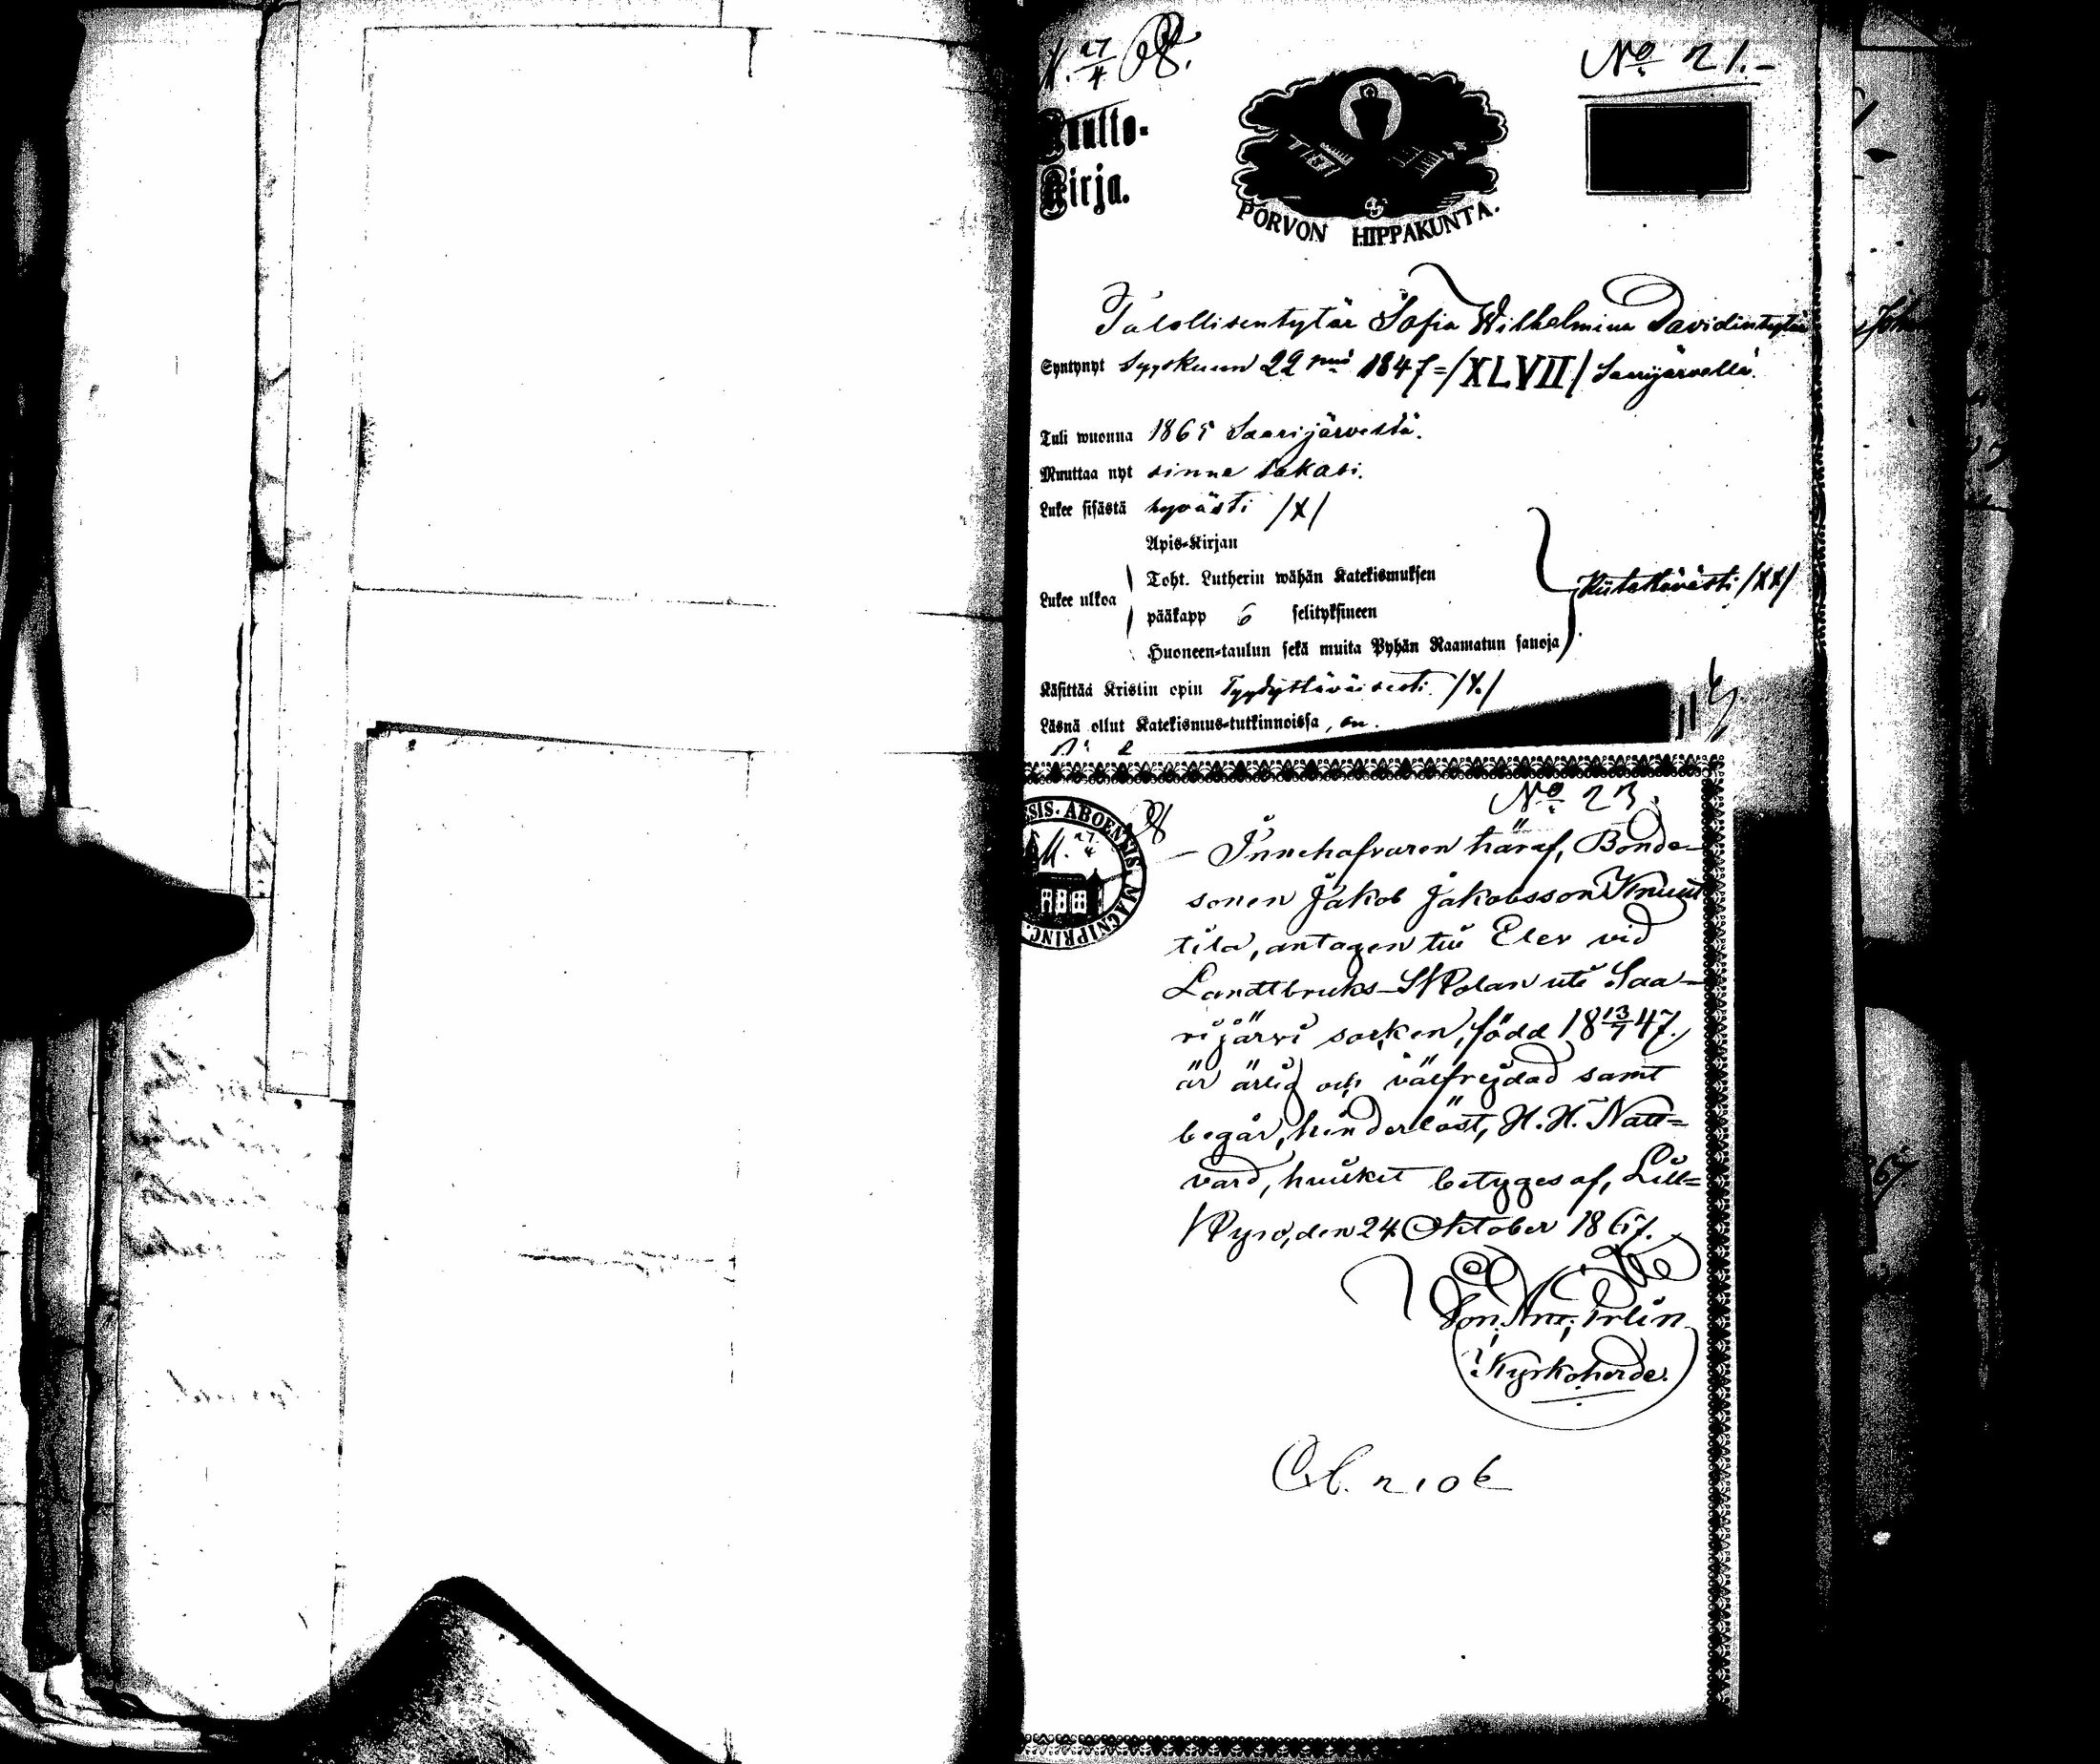 M. 27/4 68.
No 21.-
Muutto-
Kirja.
PORVON HIPPAKUNTA.
Talollisentytär Sofia Wilhelmina Davidintytär
Syntynyt Syyskuun 22 pnä 1847=/XLVII/ Saarijärvellä.
Tuli wuonna 1865 Saarijärvestä.
Muuttaa nyt sinne takasi.
Lukee sisästä hyvästi /X/
Apis-Kirjan
Toht. Lutherin wähän Katekismuksen
Lukee ulkoa
pääkapp 6 selityksineen
Kiitettävästi /XX/
Huoneen-taulun sekä muita Pyhän Raamatun sanoja
Käsittää Kristin opin Tyydyttäväisesti /X./
Läsnä ollut Katekismus-tutkinnoissa, on.
No 23.
ABOENSIS. MAGNIPRINC.
M. 27/4 68
— Innehafvaren häraf, Bonde-
sonen Jakob Jakobsson Knuut
tila, antagen till Elev vid
Landtbruks-Skolan uti Saa-
rijärvi socken, född 18 13/7 47.,
är ärlig och välfrejdad samt
begår, hinderlöst, H. H. Natt=
vard, hvilket betyges af, Lill=
Kyro, den 24 Oktober 1867.
Kyrkoherde.